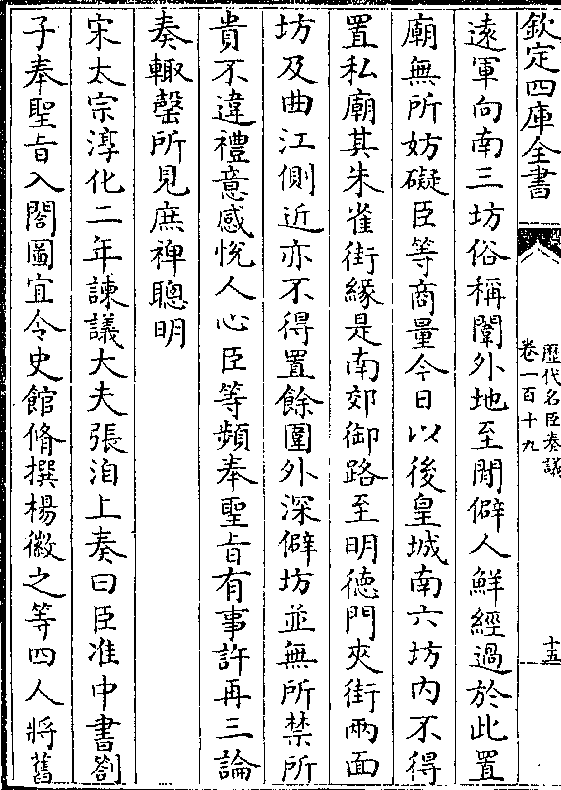 欽定四庫全書
歷代名臣奏議
卷一百十九
十五
遠軍向南三坊俗稱闈外地至閒僻人鮮經過於此置
廟無所妨礙臣等商量今日以後皇城南六坊内不得
置私廟其朱雀街緣是南郊御路至明德門夾街兩面
坊及曲江側近亦不得置餘圍外深僻坊並無所禁所
貴不違禮意感悅人心臣等頻奉聖旨有事許再三論
奏輙罄所見庶裨聰明
宋太宗淳化二年諫議大夫張洎上奏曰臣准中書劄
子奉聖旨入閤圖宜令史館脩撰楊徽之等四人將舊